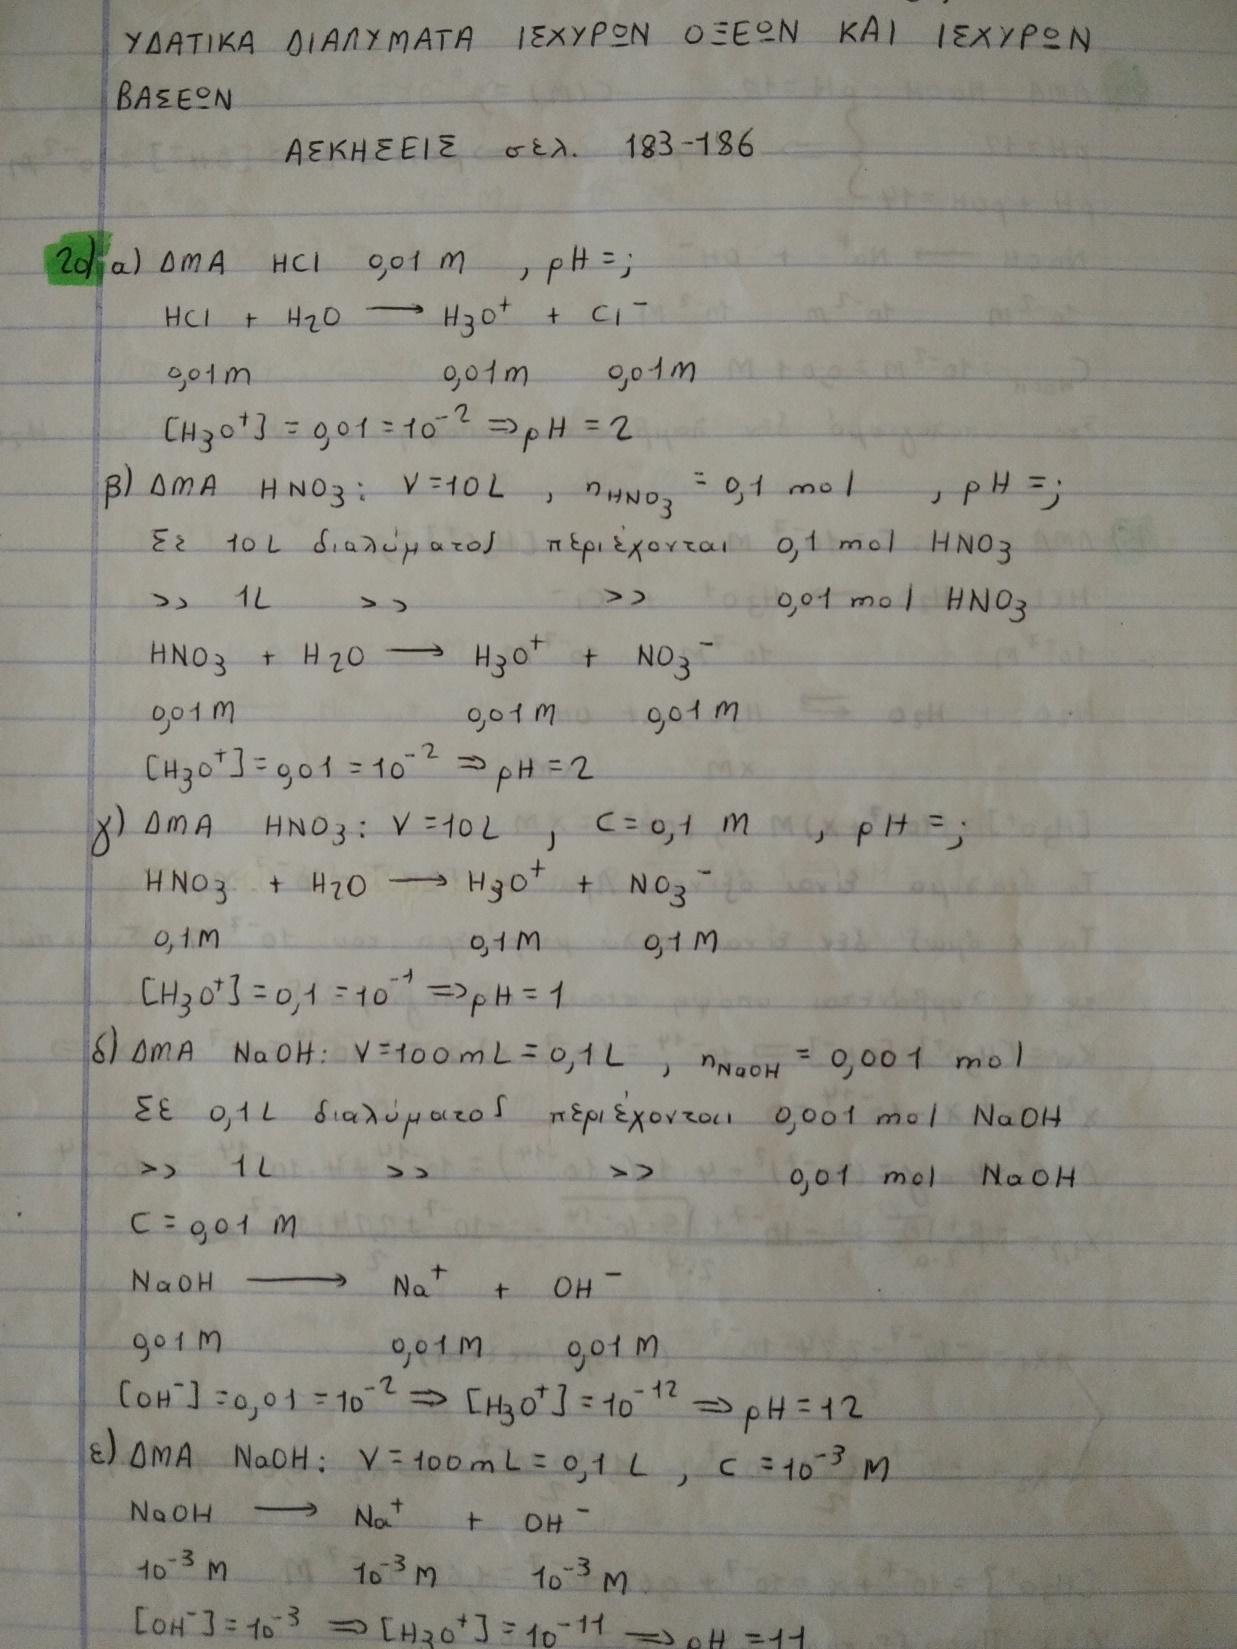 ΥΔΑΤΙΚΑ ΔΙΑΛΥΜΑΤΑ ΙΣΧΥΡΩΝ ΟΞΕΩΝ ΚΑΙ ΙΣΧΥΡΩΝ
ΒΑΣΕΩΝ
ΑΣΚΗΣΕΙΣ σελ. 183-186
20) α) ΔΜΑ HCl 0,01 M , pH = ;
HCl + H2O → H3O⁺ + Cl⁻
0,01M 0,01M 0,01M
[H3O⁺] = 0,01 = 10⁻² ⇒ pH = 2
β) ΔΜΑ HNO3: V=10L , nHNO3 = 0,1 mol , pH = ;
Σε 10L διαλύματος περιέχονται 0,1 mol HNO3
>> 1L >> >> 0,01 mol HNO3
HNO3 + H2O → H3O⁺ + NO3⁻
0,01M 0,01M 0,01M
[H3O⁺] = 0,01 = 10⁻² ⇒ pH = 2
γ) ΔΜΑ HNO3: V=10L , C=0,1 M , pH = ;
HNO3 + H2O → H3O⁺ + NO3⁻
0,1M 0,1M 0,1M
[H3O⁺] = 0,1 = 10⁻¹ ⇒ pH = 1
δ) ΔΜΑ NaOH: V=100mL=0,1L , nNaOH = 0,001 mol
Σε 0,1L διαλύματος περιέχονται 0,001 mol NaOH
>> 1L >> >> 0,01 mol NaOH
C = 0,01 M
NaOH → Na⁺ + OH⁻
0,01M 0,01M 0,01M
[OH⁻] = 0,01 = 10⁻² ⇒ [H3O⁺] = 10⁻¹² ⇒ pH = 12
ε) ΔΜΑ NaOH: V=100mL=0,1 L , C = 10⁻³ M
NaOH → Na⁺ + OH⁻
10⁻³ M 10⁻³ M 10⁻³ M
[OH⁻] = 10⁻³ ⇒ [H3O⁺] = 10⁻¹¹ ⇒ pH = 11